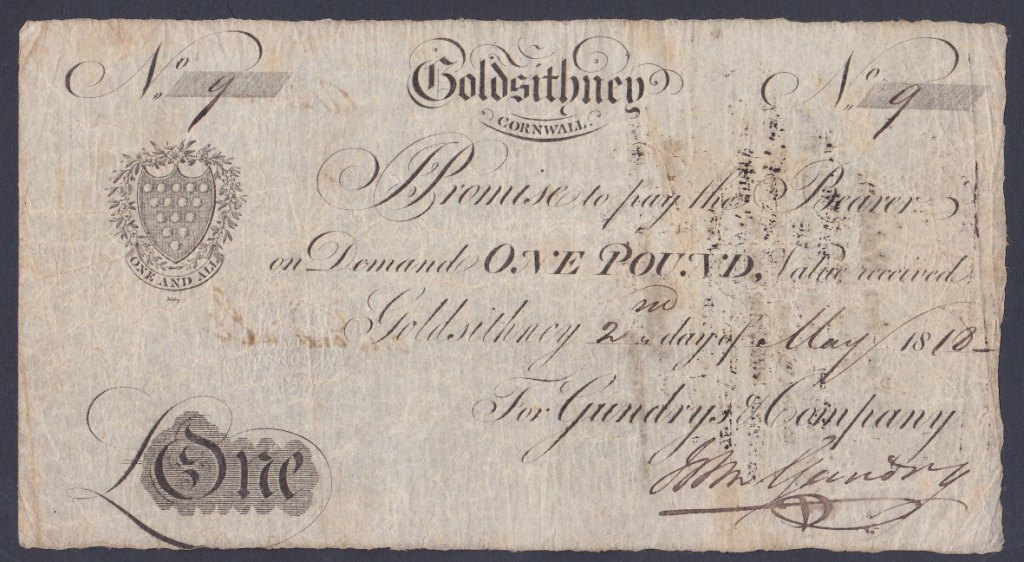 No. 9
Goldsithney
CORNWALL.
No. 9
I Promise to pay the Bearer
on Demand ONE POUND, Value received
ONE AND ALL
Goldsithney 2nd day of May 1810
For Gundrys & Company
John Gundry
£One